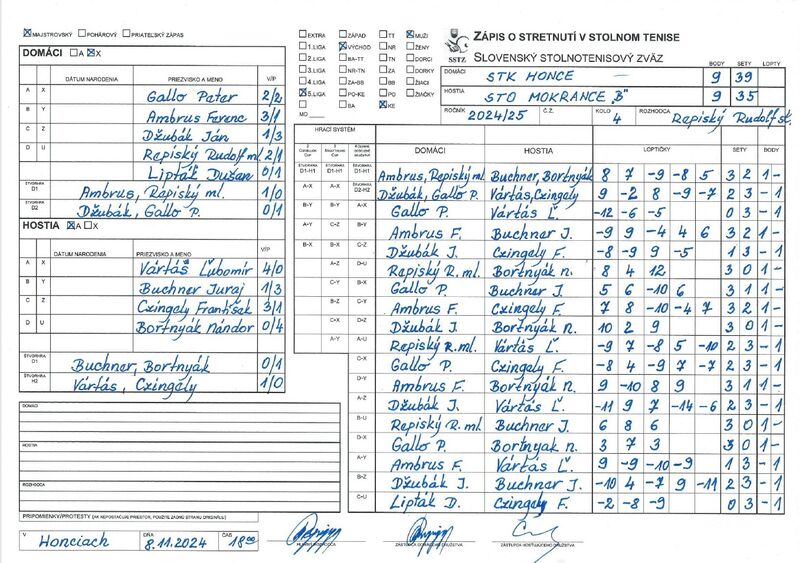 MAJSTROVSKÝ POHÁROVÝ PRIATEĽSKÝ ZÁPAS
DOMÁCI A X
DÁTUM NARODENIA PRIEZVISKO A MENO V/P
A X Gallo Pater 2/2
B Y Ambrus Ferenc 3/1
C Z Džubák Ján 1/3
D U Repiský Rudolf ml. 2/1
Lipták Dušan 0/1
ŠTVORHRA D1 Ambrus, Rápiský ml. 1/0
ŠTVORHRA D2 Džubák, Gallo P. 0/1
HOSTIA A X
DÁTUM NARODENIA PRIEZVISKO A MENO V/P
A X Vártáš Ľubomír 4/0
B Y Buchner Juraj 1/3
C Z Czingely František 3/1
D U Bortnyák Nándor 0/4
ŠTVORHRA D1 Buchner, Bortnyák 0/1
ŠTVORHRA H2 Vártás, Czingély 1/0
DOMÁCI
HOSTIA
ROZHODCA
PRIPOMIENKY/PROTESTY (AK NEPOSTAČUJE PRIESTOR, POUŽITE ZADNÚ STRANU ORIGINÁLU)
V Honciach DŇA 8.11.2024 ČAS 1800
EXTRA ZÁPAD TT MUŽI
1.LIGA VÝCHOD NR ŽENY
2.LIGA BA-TT TN DORCI
3.LIGA NR-TN ZA DORKY
4.LIGA ZA-BB BB ŽIACI
5.LIGA PO-KE PO ŽIAČKY
BA KE
MO
SSTZ
ZÁPIS O STRETNUTÍ V STOLNOM TENISE
SLOVENSKÝ STOLNOTENISOVÝ ZVÄZ
BODY SETY LOPTY
DOMÁCI STK HONCE 9 39
HOSTIA STO MOKRANCE "B" 9 35
ROČNÍK 2024/25 Č.Z. KOLO 4 ROZHODCA Repiský Rudolf st.
HRACÍ SYSTÉM
DOMÁCI HOSTIA LOPTIČKY SETY BODY
ŠTVORHRA D1-H1 ŠTVORHRA D1-H1 ŠTVORHRA D1-H1 Ambrus, Repiský ml. Buchner, Bortnyák 8 7 -9 -8 5 3 2 1 -
A-X A-X ŠTVORHRA D2-H2 Džubák, Gallo P. Vártás, Czingely 9 -2 8 -9 -7 2 3 - 1
B-Y B-Y A-X Gallo P. Vártáš Ľ. -12 -6 -5 0 3 - 1
Ambrus F. Buchner J. -9 9 -4 4 6 3 2 1 -
Džubák J. Czingely F. -8 -9 9 -5 1 3 - 1
Repiský R.ml. Bortnyák n. 8 4 12 3 0 1 -
Gallo P. Buchner J. 5 6 -10 6 3 1 1 -
Ambrus F. Czingely F. 7 8 -10 -4 7 3 2 1 -
Džubák J. Bortnyák n. 10 2 9 3 0 1 -
Repiský R.ml. Vártás Ľ. -9 7 -8 5 -10 2 3 - 1
C-X Gallo P. Czingely F. -8 4 -9 7 -7 2 3 - 1
D-Y Ambrus F. Bortnyák n. 9 -10 8 9 3 1 1 -
A-Z Džubák J. Vártás Ľ. -11 9 7 -14 -6 2 3 - 1
B-U Repiský R. ml. Buchner J. 6 8 6 3 0 1 -
D-X Gallo P. Bortnyak n. 3 7 3 3 0 1 -
A-Y Ambrus F. Vártás Ľ. 9 -9 -10 -9 1 3 - 1
B-Z Džubák J. Buchner J. -10 4 -7 9 -11 2 3 - 1
C-U Lipták D. Czingely F. -2 -8 -9 0 3 - 1
HLAVNÝ ROZHODCA ZÁSTUPCA DOMÁCEHO DRUŽSTVA ZÁSTUPCA HOSŤUJÚCEHO DRUŽSTVA